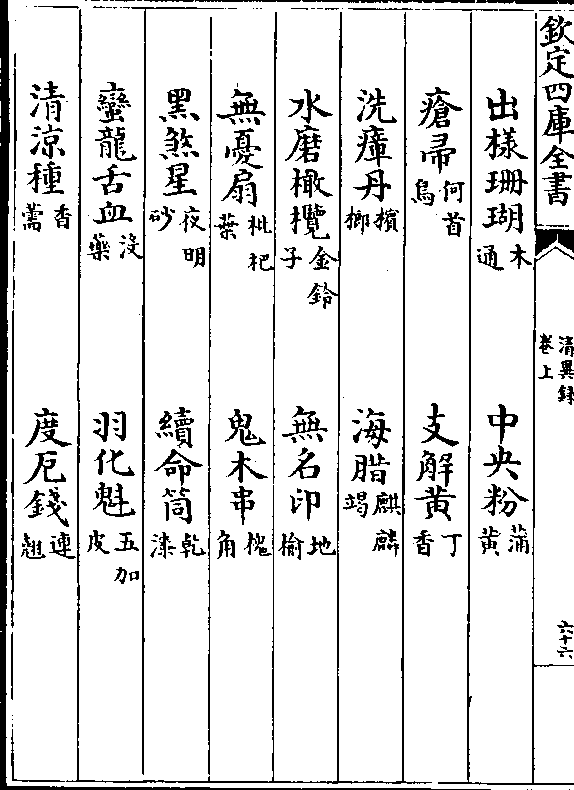 欽定四庫全書
清異録
卷上
六十六
出様珊瑚木通 中央粉蒲黄
瘡帚何首烏 支解黄丁香
洗瘴丹檳榔 海腊麒麟竭
水磨橄欖金鈴子 無名印地榆
無憂扇枇杷葉 鬼木串槐角
黒煞星夜明砂 續命筒乾漆
蠻龍舌血没藥 羽化魁五加皮
清涼種香薷 度厄錢連翹